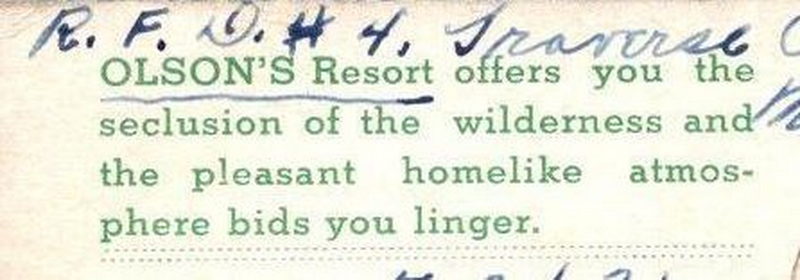 R. F. D. # 4. Traverse
OLSON'S Resort offers you the
seclusion of the wilderness and
the pleasant homelike atmos-
phere bids you linger.